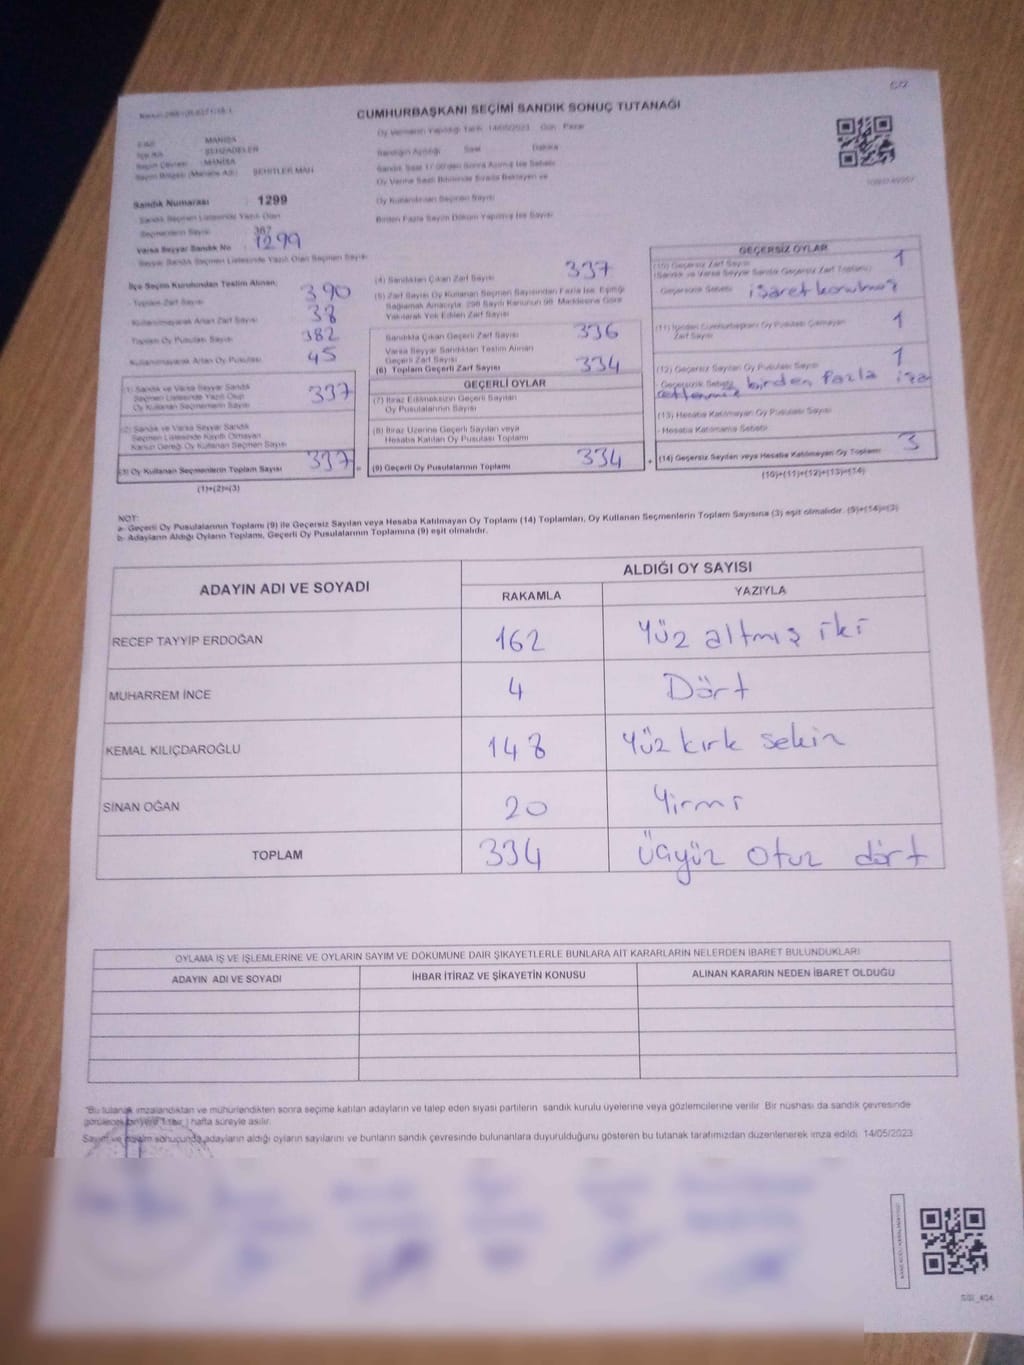 CUMHURBAŞKANI SEÇİMİ SANDIK SONUÇ TUTANAĞI
Oy Vermenin Yapıldığı Tarih 14/05/2023 Gün Pazar
MANİSA
ŞEHZADELER
MANİSA
ŞEHİTLER MAH
Sandığın Açıldığı Saat Dakika
Sandık Numarası : 1299
Oy Kullandırılan Seçmen Sayısı
Sandık Seçmen Listesinde Yazılı Olan
Seçmenlerin Sayısı 387
Varsa Seyyar Sandık No : 1299
Seyyar Sandık Seçmen Listesinde Yazılı Olan Seçmen Sayısı
İlçe Seçim Kurulundan Teslim Alınan;
Toplam Zarf Sayısı 390
Kullanılmayarak Artan Zarf Sayısı 38
Toplam Oy Pusulası Sayısı 382
Kullanılmayarak Artan Oy Pusulası 45
(1) Sandık ve Varsa Seyyar Sandık
Seçmen Listesinde Yazılı Olup
Oy Kullanan Seçmenlerin Sayısı 337
(2) Sandık ve Varsa Seyyar Sandık
Seçmen Listesinde Kayıtlı Olmayan
Kanun Gereği Oy Kullanan Seçmen Sayısı
(3) Oy Kullanan Seçmenlerin Toplam Sayısı 337
(1)+(2)=(3)
(4) Sandıktan Çıkan Zarf Sayısı 337
(5) Zarf Sayısı Oy Kullanan Seçmen Sayısından Fazla İse, Eşitliği
Sağlamak Amacıyla, 298 Sayılı Kanunun 98. Maddesine Göre
Yakılarak Yok Edilen Zarf Sayısı
Sandıkta Çıkan Geçerli Zarf Sayısı 336
Varsa Seyyar Sandıktan Teslim Alınan
Geçerli Zarf Sayısı
(6) Toplam Geçerli Zarf Sayısı 334
GEÇERLİ OYLAR
(7) İtiraz Edilmeksizin Geçerli Sayılan
Oy Pusulalarının Sayısı
(8) İtiraz Üzerine Geçerli Sayılan veya
Hesaba Katılan Oy Pusulası Toplamı
(9) Geçerli Oy Pusulalarının Toplamı 334
GEÇERSİZ OYLAR
(10) Geçersiz Zarf Sayısı 1
(Sandık ve Varsa Seyyar Sandık Geçersiz Zarf Toplamı)
Geçersizlik Sebebi
(11) İçinden Cumhurbaşkanı Oy Pusulası Çıkmayan 1
Zarf Sayısı
(12) Geçersiz Sayılan Oy Pusulası Sayısı 1
- Geçersizlik Sebebi birden fazla
(13) Hesaba Katılmayan Oy Pusulası Sayısı
- Hesaba Katılmama Sebebi
(14) Geçersiz Sayılan veya Hesaba Katılmayan Oy Toplamı 3
(10)+(11)+(12)+(13)=(14)
NOT:
a- Geçerli Oy Pusulalarının Toplamı (9) ile Geçersiz Sayılan veya Hesaba Katılmayan Oy Toplamı (14) Toplamları, Oy Kullanan Seçmenlerin Toplam Sayısına (3) eşit olmalıdır. (9)+(14)=(3)
b- Adayların Aldığı Oyların Toplamı, Geçerli Oy Pusulalarının Toplamına (9) eşit olmalıdır.
ADAYIN ADI VE SOYADI
ALDIĞI OY SAYISI
RAKAMLA YAZIYLA
RECEP TAYYİP ERDOĞAN 162 Yüz altmış iki
MUHARREM İNCE 4 Dört
KEMAL KILIÇDAROĞLU 148 Yüz kırk sekiz
SİNAN OĞAN 20 Yirmi
TOPLAM 334 Üçyüz otuz dört
OYLAMA İŞ VE İŞLEMLERİNE VE OYLARIN SAYIM VE DÖKÜMÜNE DAİR ŞİKAYETLERLE BUNLARA AİT KARARLARIN NELERDEN İBARET BULUNDUKLARI
ADAYIN ADI VE SOYADI İHBAR İTİRAZ VE ŞİKAYETİN KONUSU ALINAN KARARIN NEDEN İBARET OLDUĞU
*Bu tutanak imzalandıktan ve mühürlendikten sonra seçime katılan adayların ve talep eden siyasi partilerin sandık kurulu üyelerine veya gözlemcilerine verilir. Bir nüshası da sandık çevresinde
görülecek bir yere 1 (bir) hafta süreyle asılır.
Sayım ve döküm sonucunda adayların aldığı oyların sayılarını ve bunların sandık çevresinde bulunanlara duyurulduğunu gösteren bu tutanak tarafımızdan düzenlenerek imza edildi. 14/05/2023